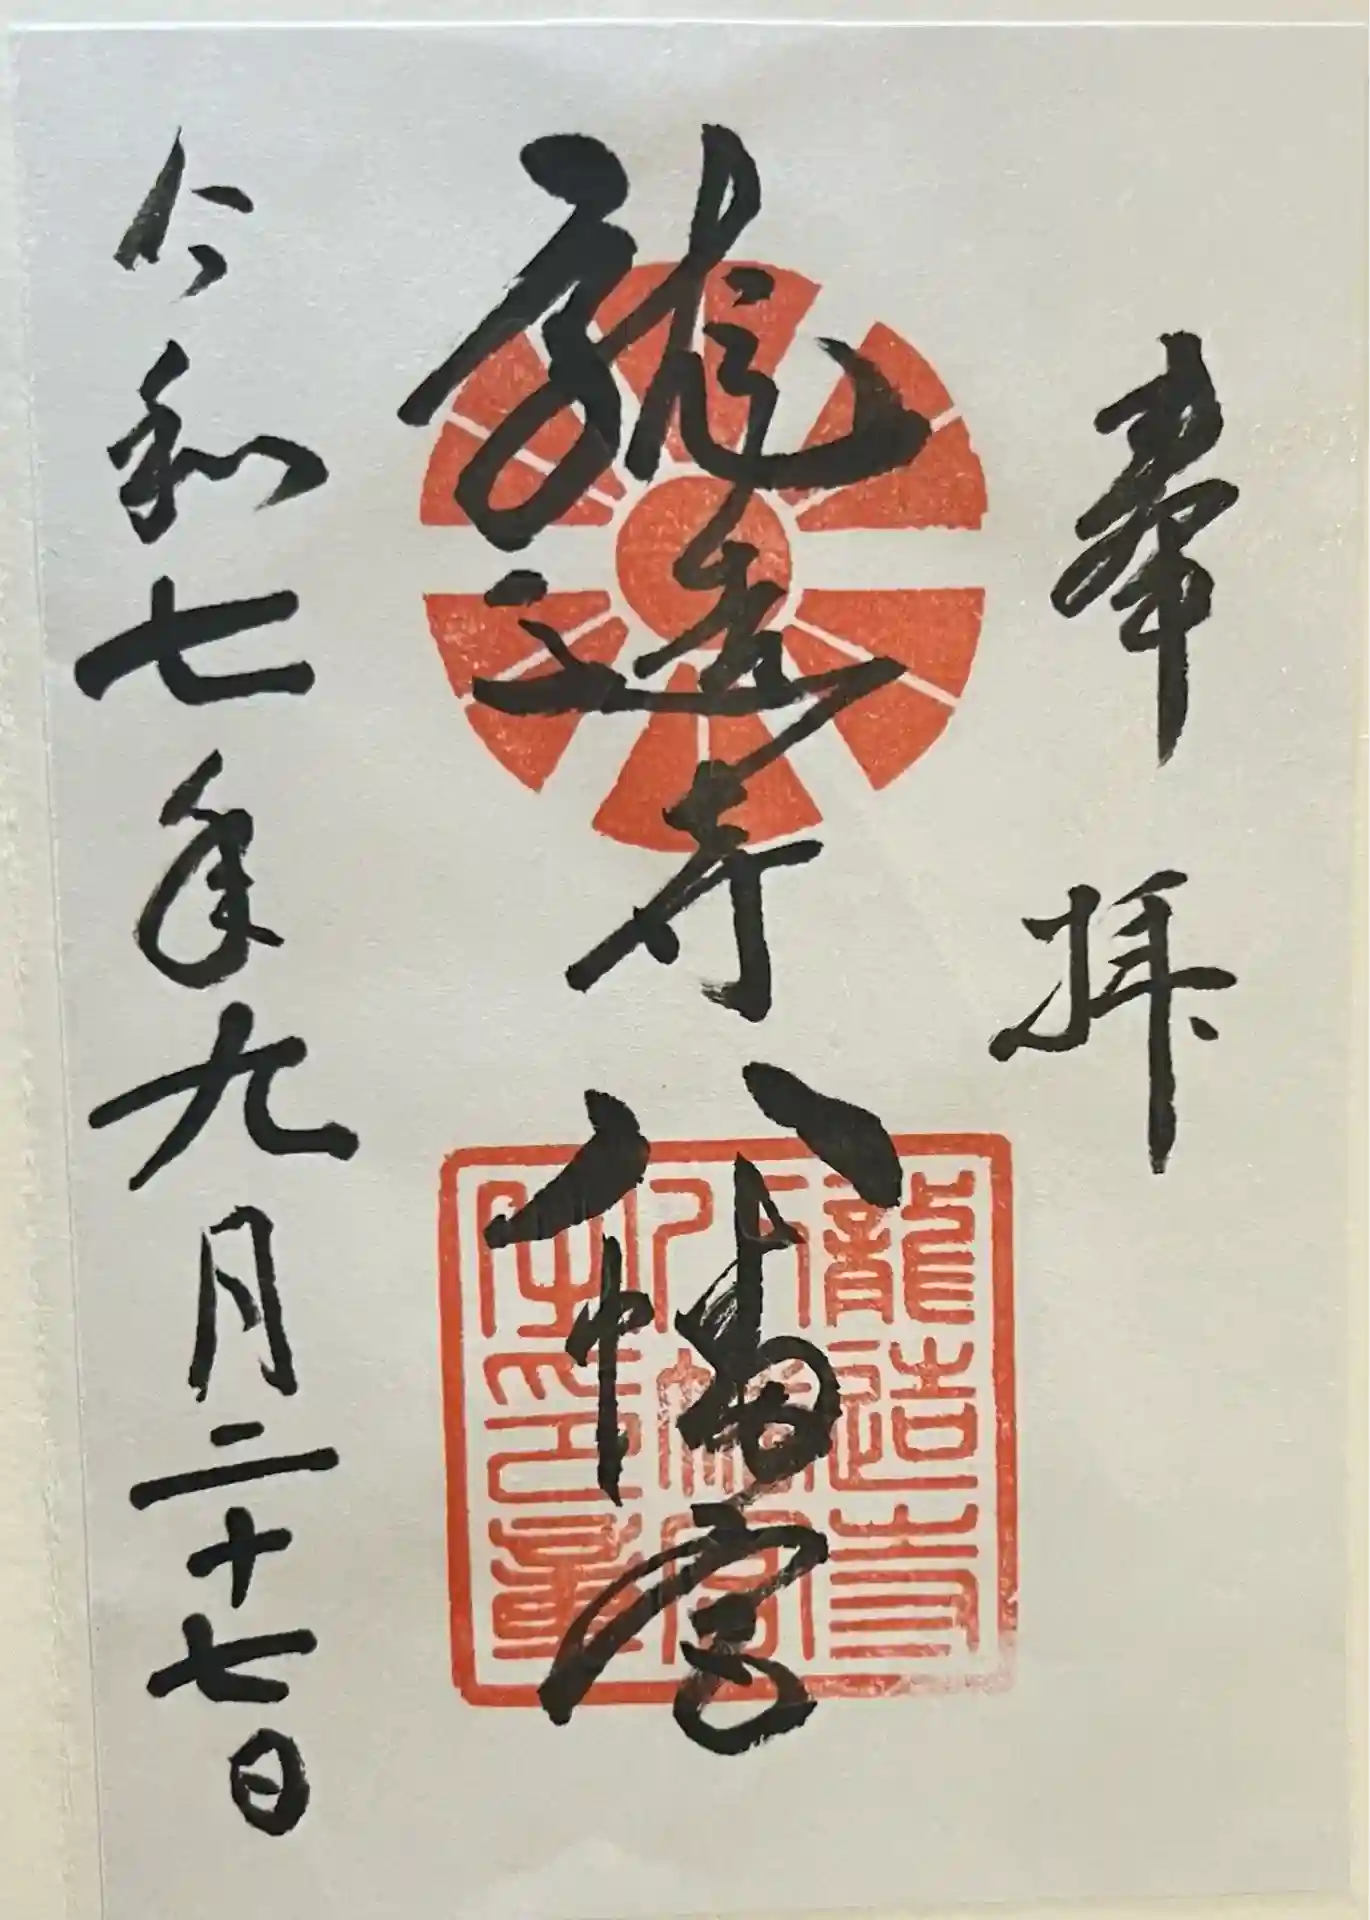 奉拝
龍造寺八幡宮
龍造寺
八幡宮
令和七年九月二十七日